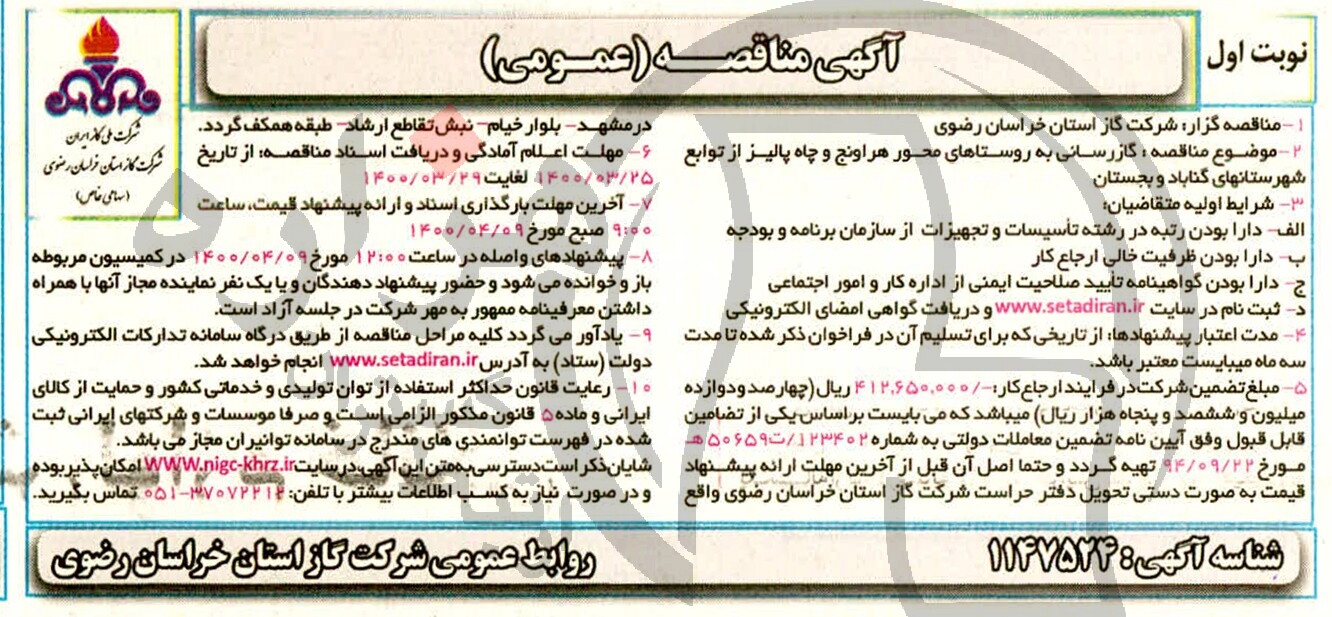 نوبت اول
آگهی مناقصه (عمومی)
شرکت ملی گاز ایران
شرکت گاز استان خراسان رضوی
(سهامی خاص)
۱- مناقصه گزار: شرکت گاز استان خراسان رضوی
۲- موضوع مناقصه : گازرسانی به روستاهای محور هراونج و چاه پالیز از توابع
شهرستانهای گناباد و بجستان
۳- شرایط اولیه متقاضیان:
الف- دارا بودن رتبه در رشته تأسیسات و تجهیزات از سازمان برنامه و بودجه
ب- دارا بودن ظرفیت خالی ارجاع کار
ج- دارا بودن گواهینامه تایید صلاحیت ایمنی از اداره کار و امور اجتماعی
د- ثبت نام در سایت www.setadiran.ir و دریافت گواهی امضای الکترونیکی
۴- مدت اعتبار پیشنهادها: از تاریخی که برای تسلیم آن در فراخوان ذکر شده تا مدت
سه ماه میبایست معتبر باشد.
۵- مبلغ تضمین شرکت در فرایند ارجاع کار: -/۴۱۲,۶۵۰,۰۰۰ ریال (چهارصد و دوازده
میلیون و ششصد و پنجاه هزار ریال) میباشد که می بایست بر اساس یکی از تضامین
قابل قبول وفق آیین نامه تضمین معاملات دولتی به شماره ۱۲۳۴۰۲/ت۵۰۶۵۹هـ
مورخ ۹۴/۰۹/۲۲ تهیه گردد و حتما اصل آن قبل از آخرین مهلت ارائه پیشنهاد
قیمت به صورت دستی تحویل دفتر حراست شرکت گاز استان خراسان رضوی واقع
در مشهد- بلوار خیام- نبش تقاطع ارشاد- طبقه همکف گردد.
۶- مهلت اعلام آمادگی و دریافت اسناد مناقصه: از تاریخ
۱۴۰۰/۰۳/۲۵ لغایت ۱۴۰۰/۰۳/۲۹
۷- آخرین مهلت بارگذاری اسناد و ارائه پیشنهاد قیمت، ساعت
۹:۰۰ صبح مورخ ۱۴۰۰/۰۴/۰۹
۸- پیشنهادهای واصله در ساعت ۱۲:۰۰ مورخ ۱۴۰۰/۰۴/۰۹ در کمیسیون مربوطه
باز و خوانده می شود و حضور پیشنهاد دهندگان و یا یک نفر نماینده مجاز آنها با همراه
داشتن معرفینامه ممهور به مهر شرکت در جلسه آزاد است.
۹- یادآور می گردد کلیه مراحل مناقصه از طریق درگاه سامانه تدارکات الکترونیکی
دولت (ستاد) به آدرس www.setadiran.ir انجام خواهد شد.
۱۰- رعایت قانون حداکثر استفاده از توان تولیدی و خدماتی کشور و حمایت از کالای
ایرانی و ماده ۵ قانون مذکور الزامی است و صرفا موسسات و شرکتهای ایرانی ثبت
شده در فهرست توانمندی های مندرج در سامانه توانیران مجاز می باشد.
شایان ذکر است دسترسی به متن این آگهی در سایت WWW.nigc-khrz.ir امکان پذیر بوده
و در صورت نیاز به کسب اطلاعات بیشتر با تلفن: ۳۷۰۷۲۲۱۲-۰۵۱ تماس بگیرید.
شناسه آگهی : ۱۱۴۷۵۲۴
روابط عمومی شرکت گاز استان خراسان رضوی